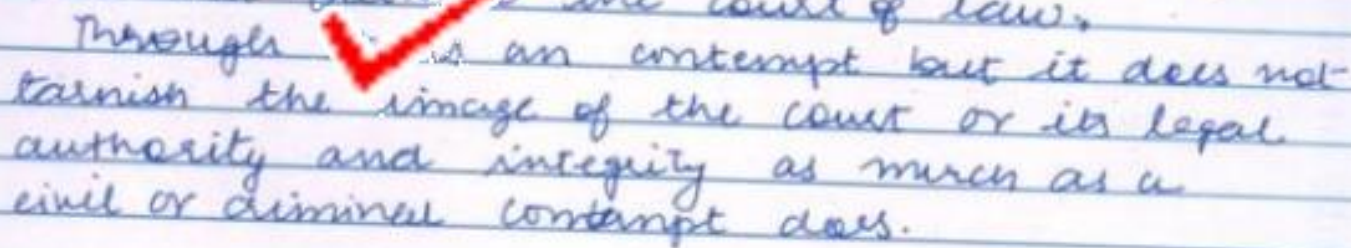 the court of law.
Through is an contempt but it does not
tarnish the image of the court or its legal
authority and integrity as much as a
civil or criminal contempt does.